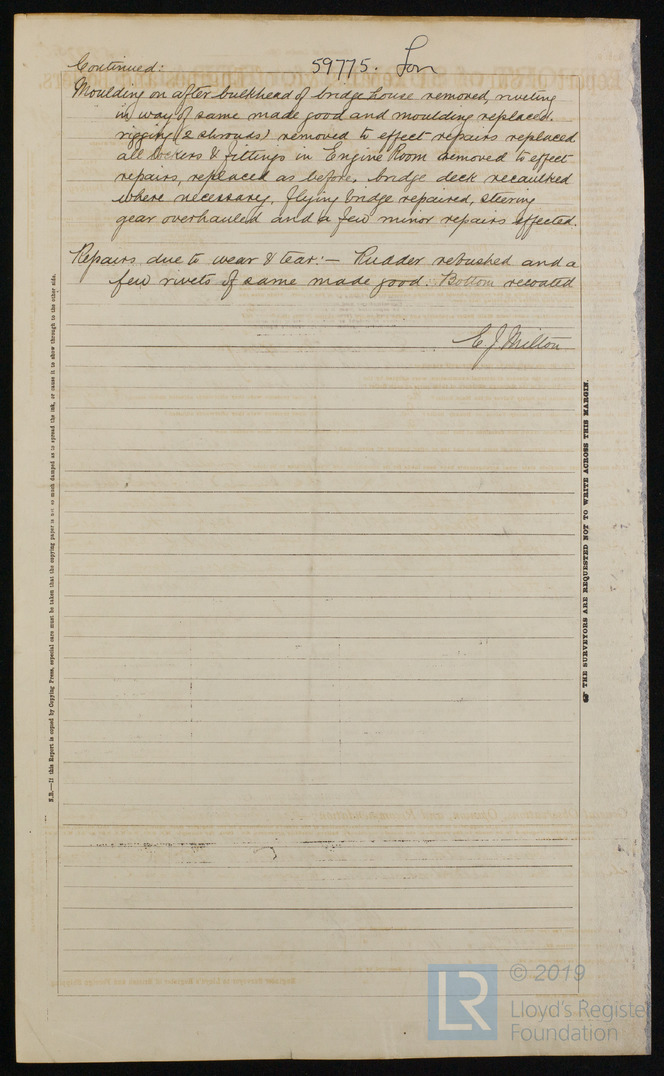 Continued: 59775. Lon
Moulding on after bulkhead of bridge house removed, riveting
in way of same made good and moulding replaced.
rigging (2 shrouds) removed to effect repairs replaced
all lockers & fittings in Engine Room removed to effect
repairs, replaced as before, bridge deck recaulked
where necessary, flying bridge repaired, steering
gear overhauled and a few minor repairs effected.
Repairs due to wear & tear:— Rudder rebushed and a
few rivets of same made good. Bottom recoated
E. J. Milton
N.B.—If this Report is copied by Copying Press, especial care must be taken that the copying paper is not so much damped as to spread the ink, or cause it to show through to the other side.
THE SURVEYORS ARE REQUESTED NOT TO WRITE ACROSS THIS MARGIN.
LR
© 2019
Lloyd's Register
Foundation